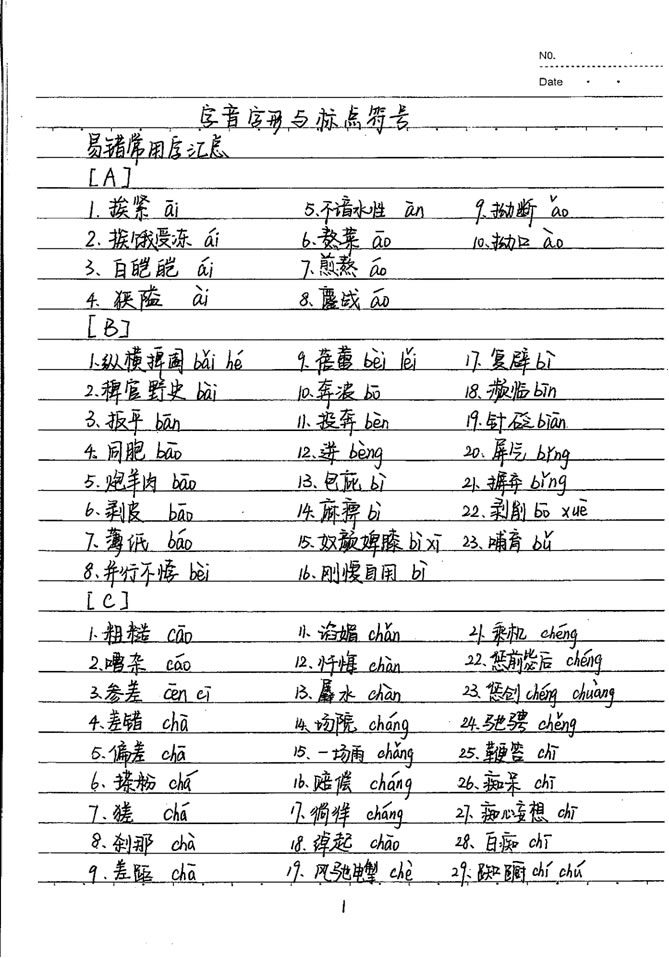 NO.
Date
字音字形与标点符号
易错常用字汇总
[A]
1. 挨紧 āi 5、不谙水性 ān 9、拗断 ǎo
2、挨饿受冻 ái 6、熬菜 āo 10、拗口 ào
3、白皑皑 ái 7、煎熬 áo
4、狭隘 ài 8、鏖战 áo
[B]
1、纵横捭阖 bǎi hé 9、蓓蕾 bèi lěi 17、复辟 bì
2、稗官野史 bài 10、奔波 bō 18、濒临 bīn
3、扳平 bān 11、投奔 bèn 19、针砭 biān
4、同胞 bāo 12、迸 bèng 20、屏气 bǐng
5、炮羊肉 bāo 13、包庇 bì 21、摒弃 bǐng
6、剥皮 bāo 14、麻痹 bì 22、剥削 bō xuē
7、薄纸 báo 15、奴颜婢膝 bì xī 23、哺育 bǔ
8、并行不悖 bèi 16、刚愎自用 bì
[C]
1、粗糙 cāo 11、谄媚 chǎn 21、乘机 chéng
2、嘈杂 cáo 12、忏悔 chàn 22、惩前毖后 chéng
3、参差 cēn cī 13、羼水 chàn 23、惩创 chéng chuàng
4、差错 chā 14、场院 cháng 24、驰骋 chěng
5、偏差 chā 15、一场雨 cháng 25、鞭笞 chī
6、搽粉 chá 16、赔偿 cháng 26、痴呆 chī
7、猹 chá 17、徜徉 cháng 27、痴心妄想 chī
8、刹那 chà 18、绰起 chāo 28、白痴 chī
9、差距 chā 19、风驰电掣 chè 29、踟蹰 chí chú
1